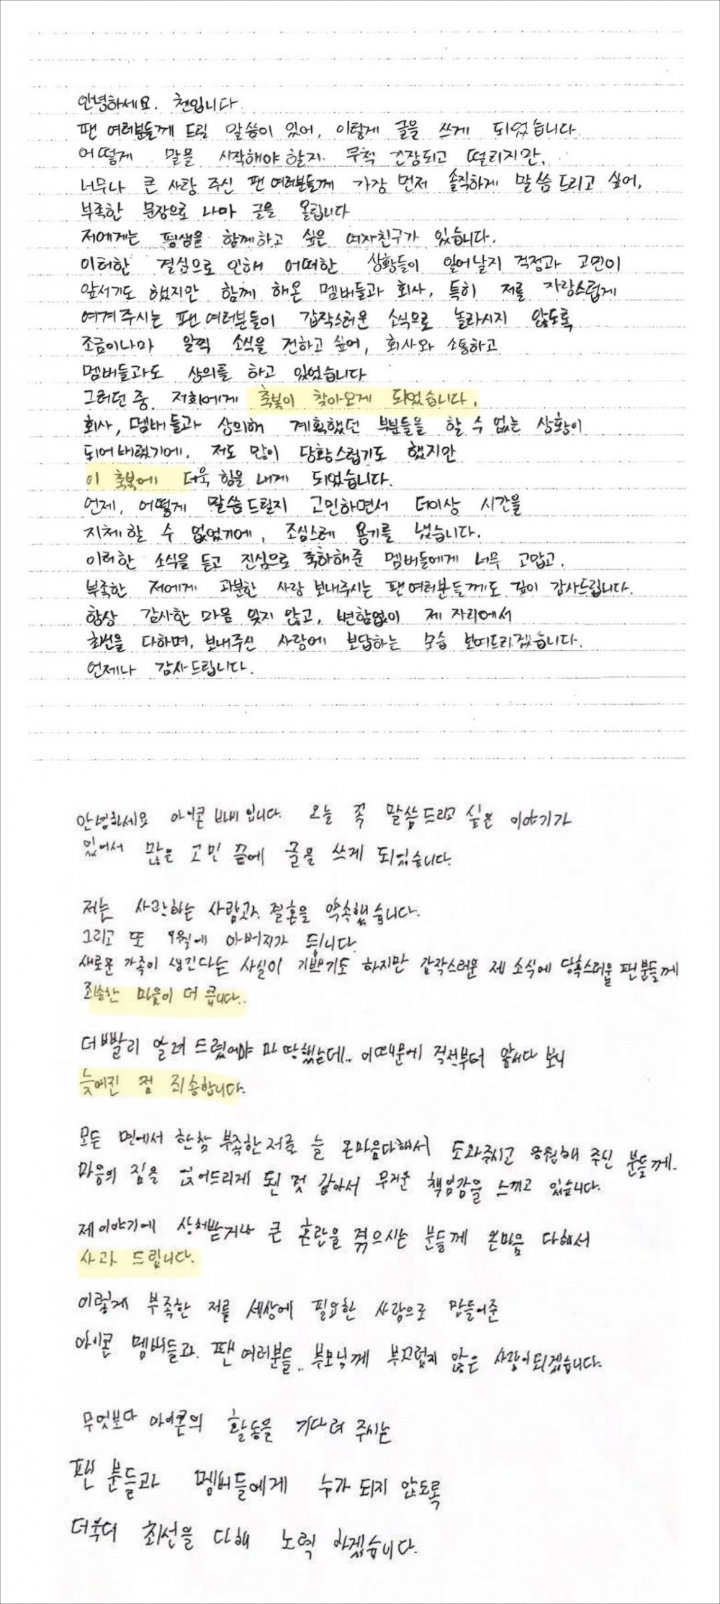 안녕하세요. 첸입니다
팬 여러분들께 드릴 말씀이 있어, 이렇게 글을 쓰게 되었습니다
어떻게 말을 시작해야 할지 무척 긴장되고 떨리지만,
너무나 큰 사랑 주신 팬 여러분들께 가장 먼저 솔직하게 말씀드리고 싶어,
부족한 문장으로 나마 글을 올립니다
저에게는 평생을 함께하고 싶은 여자친구가 있습니다.
이러한 결심으로 인해 어떠한 상황들이 일어날지 걱정과 고민이
앞서기도 했지만 함께 해온 멤버들과 회사, 특히 저를 자랑스럽게
여겨주시는 팬 여러분들이 갑작스러운 소식으로 놀라시지 않도록
조금이나마 일찍 소식을 전하고 싶어, 회사와 소통하고
멤버들과도 상의를 하고 있었습니다
그러던 중, 저희에게 축복이 찾아오게 되었습니다.
회사, 멤버들과 상의해 계획했던 부분들을 할 수 없는 상황이
되어버렸기에, 저도 많이 당황스럽기도 했지만
이 축복에 더욱 힘을 내게 되었습니다.
언제, 어떻게 말씀드릴지 고민하면서 더이상 시간을
지체할 수 없었기에, 조심스레 용기를 냈습니다.
이러한 소식을 듣고 진심으로 축하해준 멤버들에게 너무 고맙고,
부족한 저에게 과분한 사랑 보내주시는 팬 여러분들께도 깊이 감사드립니다.
항상 감사한 마음 잊지 않고, 변함없이 제 자리에서
최선을 다하며, 보내주신 사랑에 보답하는 모습 보여드리겠습니다.
언제나 감사드립니다.
안녕하세요 아이콘 바비입니다. 오늘 꼭 말씀드리고 싶은 이야기가
있어서 많은 고민 끝에 글을 쓰게 되었습니다.
저는 사랑하는 사람과 결혼을 약속했습니다.
그리고 또 9월에 아버지가 됩니다.
새로운 가족이 생긴다는 사실이 기쁘기도 하지만 갑작스러운 제 소식에 당혹스러울 팬분들께
죄송한 마음이 더 큽니다..
더 빨리 알려 드렸어야 마땅했는데.. 이 때문에 걱정부터 앞서다 보니
늦어진 점 죄송합니다.
모든 면에서 한참 부족한 저를 늘 온마음다해서 도와주시고 응원해 주신 분들께.
마음의 짐을 얹어드리게 된 것 같아서 무거운 책임감을 느끼고 있습니다.
제 이야기에 상처받거나 큰 혼란을 겪으시는 분들께 온마음 다해서
사과 드립니다.
이렇게 부족한 저를 세상에 필요한 사람으로 만들어준
아이콘 멤버들과. 팬 여러분들.. 부모님께 부끄럽지 않은 사람이되겠습니다.
무엇보다 아이콘의 활동을 기다려 주시는
팬 분들과 멤버들에게 누가 되지 않도록
더욱더 최선을 다해 노력 하겠습니다.